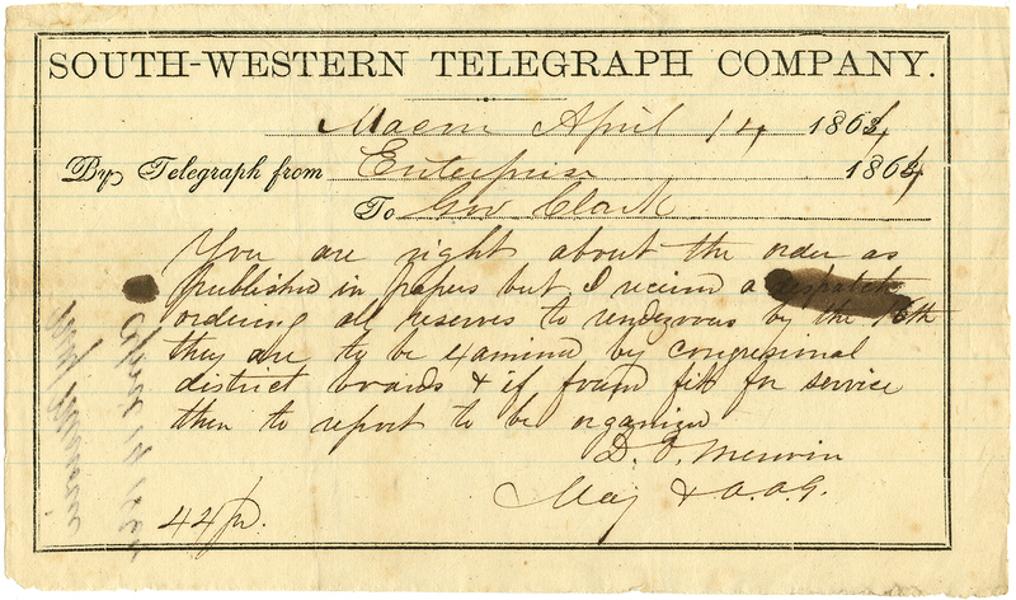 SOUTH-WESTERN TELEGRAPH COMPANY.
Macon April 14, 1864
By Telegraph from Enterprise 1864
To Gov Clark
You are right about the order as
published in papers but I received a despatch
ordering all reserves to rendezvous by the 16th
they are to be examined by congresional
district boards & if found fit for service
then to report to be organized
D. O. Merwin
Maj & A.A.G.
44 pd.